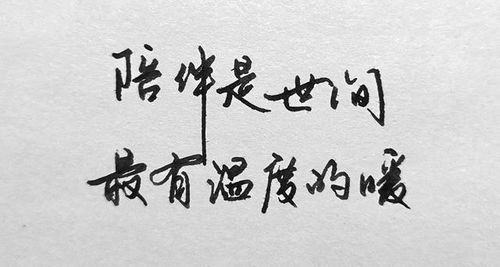 陪伴是世间
最有温度的暖